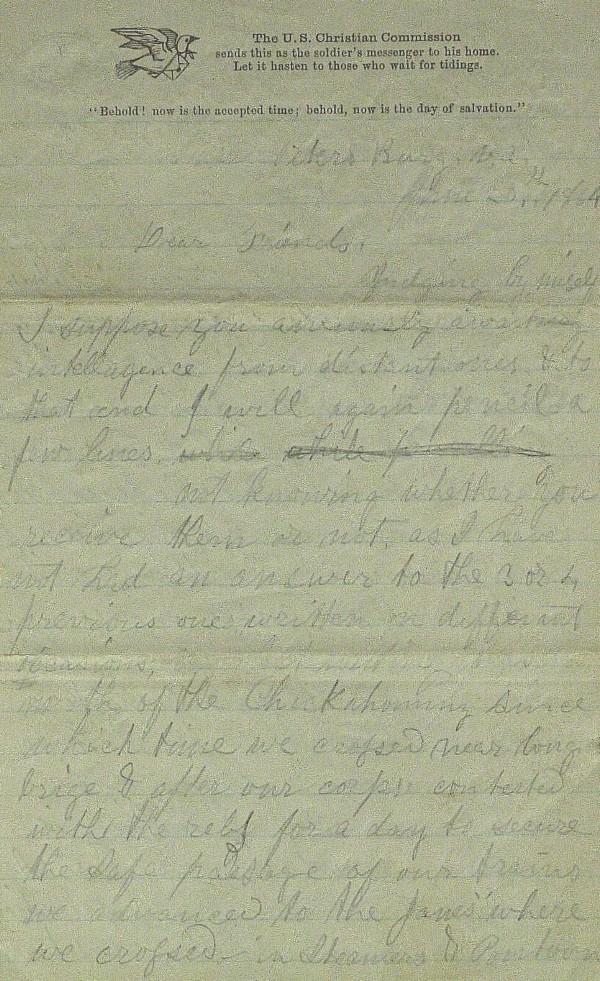 The U. S. Christian Commission
sends this as the soldier's messenger to his home.
Let it hasten to those who wait for tidings.
"Behold! now is the accepted time; behold, now is the day of salvation."
Burg. Va.
Dear Friends.
Judging by
I suppose you awaiting
intelagence from distant ones & to
that end I will again pencil a
few lines. while
not knowing whether you
receive them or not, as I have
not had an answer to the 3 or 4
previous ones written on different
of the Chickahominy since
which time we crossed near long
brige & after our corps contested
with the rebs for a day to secure
the safe passage of our trains
we advanced to the James where
we crossed in Steamers & Pontoon